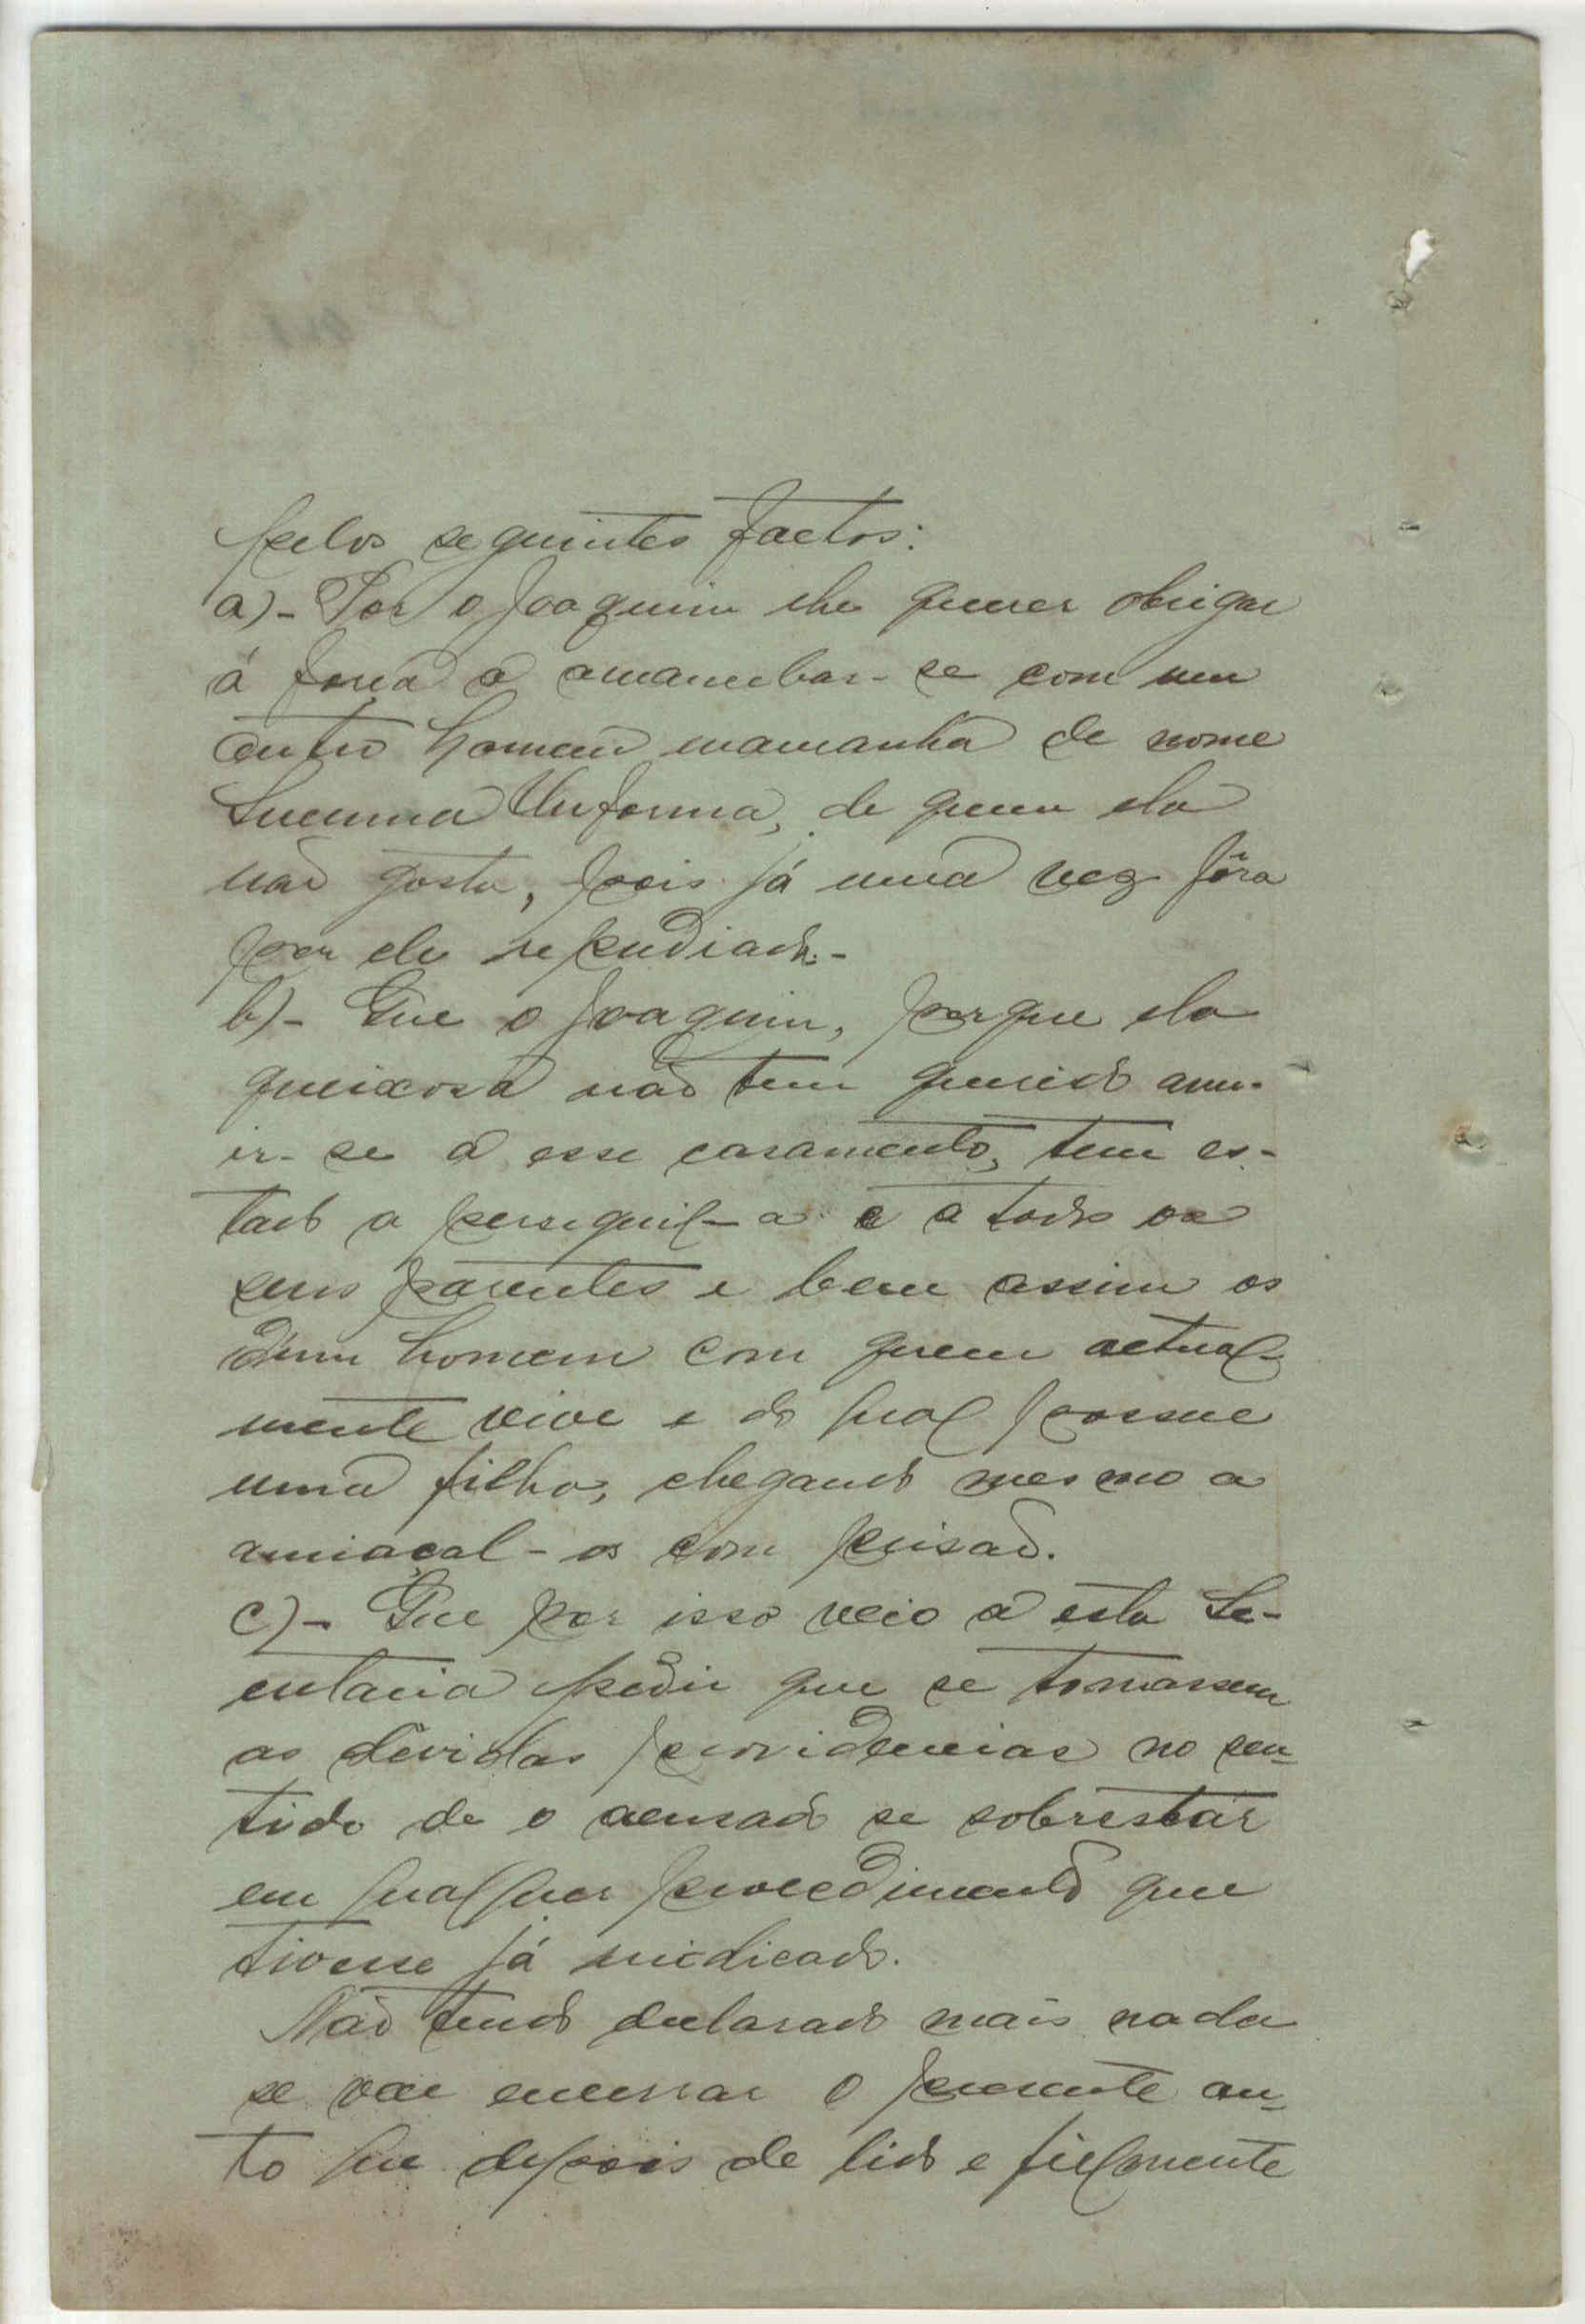 pelos seguintes factos:
a)- Por o Joaquim lhe querer obrigar
á força a amancebar-se com um
outro homem mamanha de nome
de quem ela
não gosta, pois já uma vez fôra
por ele repudiada.-
b)- Que o Joaquim, porque ela
queixosa não tem querido anu-
ir-se a esse casamento, tem es-
tado a perseguil-a e a todos os
seus parentes e bem assim os
dum homem com quem actual-
mente vive e do qual possue
uma filha, chegando mesmo a
amiaçal-os com prisão.
c)- Que por isso veio a esta Se-
cretaria pedir que se tomassem
as devidas providencias no sen-
tido de o acusado se sobrestár
em qualquer procedimento que
tivesse já indicado.
Não tendo declarado mais nada
se vae encerrar o presente au-
to que depois de lido e fielmente